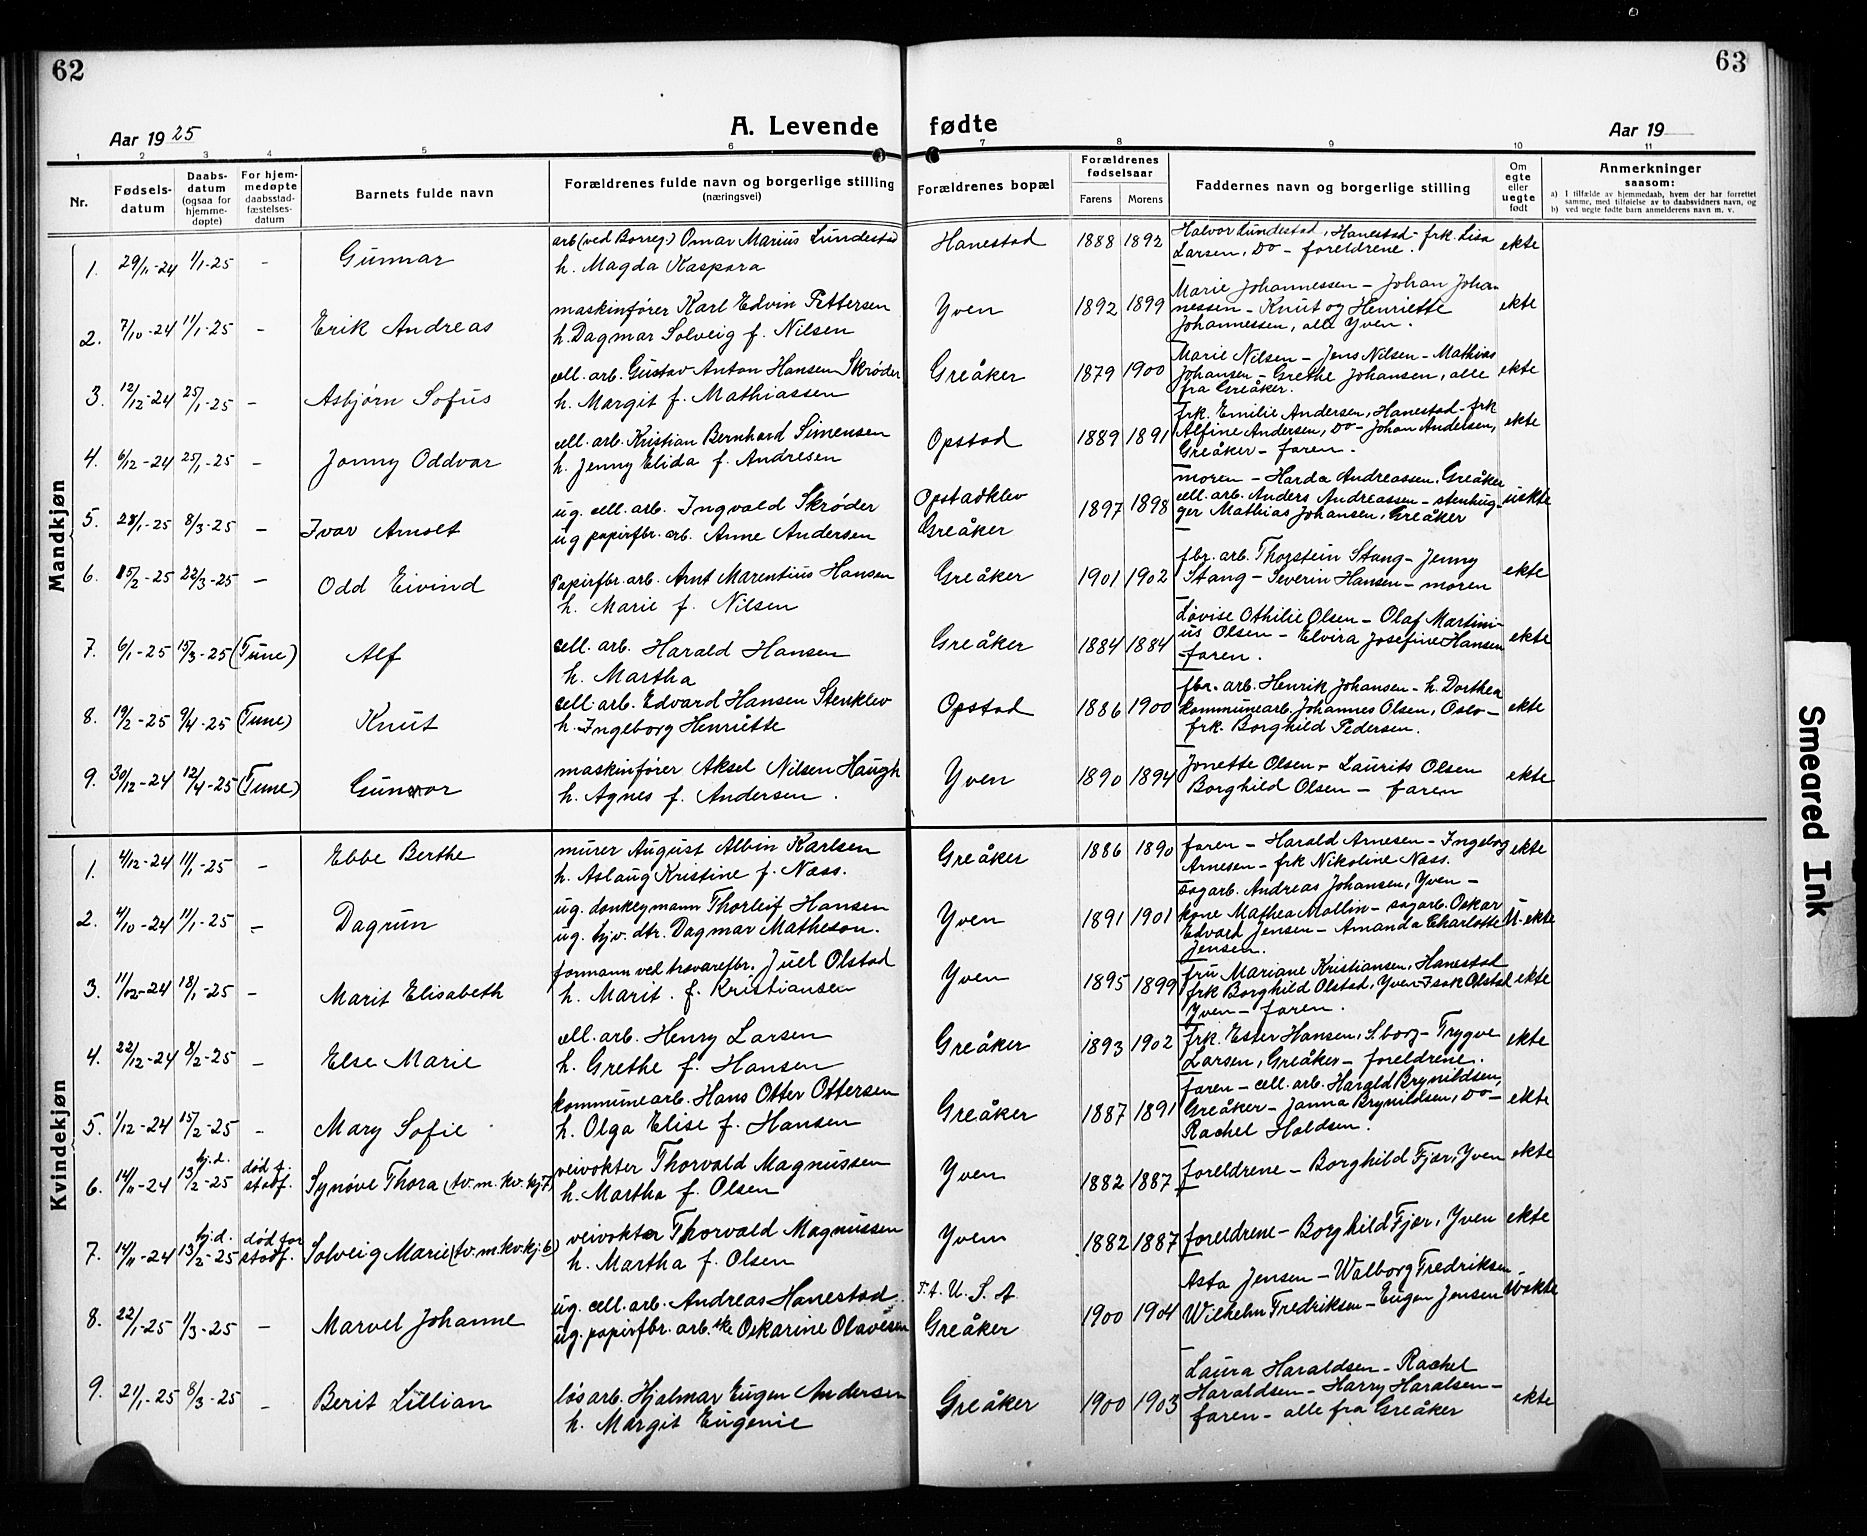 62
63
Aar 1925
A. Levende fødte
Aar 19
1 2 3 4 5 6 7 8 9 10 11
Nr.
Fødsels-
datum
Daabs-
datum
(ogsaa for
hjemme-
døpte)
For hjem-
medøpte
daabsstad-
fæstelses-
datum
Barnets fulde navn
Forældrenes fulde navn og borgerlige stilling
(næringsvei)
Forældrenes bopæl
Forældrenes
fødselsaar
Farens Morens
Faddernes navn og borgerlige stilling
Om
egte
eller
uegte
født
Anmerkninger
saasom:
a) I tilfælde av hjemmedaab, hvem der har forrettet
samme, med tilføielse av to daabsvidners navn, og
b) ved uegte fødte barn anmelderens navn m. v.
Mandkjøn
1. 29/11-24 1/1-25 - Gunnar
arb (ved Borreg.) Omar Marius Lundestad
h. Magda Kaspara
Hanestad 1888 1892
Halvor Lundestad, Hanestad - frk. Lisa
Larsen, Do - foreldrene.
ekte
2. 7/10-24 11/1-25 - Erik Andreas
maskinfører Karl Edvin Pettersen
h. Dagmar Solveig f. Nilsen
Yven 1892 1899
Marie Johannessen - Johan Johan
nessen - Knut og Henriette
Johannessen, alle Yven.
ekte
3. 12/12-24 25/1-25 - Asbjørn Sofus
cell. arb. Gustav Anton Hansen Skrøder
h. Margit f. Mathiassen
Greåker 1879 1900
Marie Nilsen - Jens Nilsen - Mathias
Johansen - Grethe Johansen, alle
fra Greåker.
ekte
4. 6/12-24 25/1-25 - Jonny Oddvar
cell. arb. Kristian Bernhard Simensen
h. Jenny Elida f. Andresen
Opstad 1889 1891
frk. Emilie Andersen, Hanestad - frk
Alfine Andersen, Do - Johan Andersen,
Greåker - faren.
ekte
5. 28/1-25 8/3-25 - Ivar Arnolt
ug. cell. arb. Ingvald Skrøder
ug papirfbr. arb. Anne Andersen
Opstadklev
Greåker
1897 1898
moren - Harda Andreassen, Greåker
cell. arb. Anders Andreassen - stenhug-
ger Mathias Johansen, Greåker
uekte
6. 15/2-25 22/3-25 - Odd Eivind
Papirfbr. arb. Arnt Marentius Hansen
h. Marie f. Nilsen
Greåker 1901 1902
fbr. arb. Thorstein Stang - Jenny
Stang - Severin Hansen - moren
ekte
7. 6/1-25 15/3-25 (Tune) Alf
cell. arb. Harald Hansen
h. Martha
Greåker 1884 1884
Lovise Othilie Olsen - Olaf Martini-
us Olsen - Elvira Josefine Hansen
- faren.
ekte
8. 19/2-25 9/4-25 (Tune) Knut
cell arb. Edvard Hansen Stenklev
h. Ingeborg Henriette
Opstad 1886 1900
fbr. arb. Henrik Johansen - h. Dorthea
kommunearb. Johannes Olsen, Oslo -
frk. Borghild Pedersen.
ekte
9. 30/12-24 12/4-25 (Tune) Gunvor
maskinfører Aksel Nilsen Haugh
h. Agnes f. Andersen.
Yven 1890 1894
Jonette Olsen - Laurits Olsen
Borghild Olsen - faren
ekte
Kvindekjøn
1. 4/12-24 11/1-25 - Ebbe Berthe
murer August Albin Karlsen
h. Aslaug Kristine f. Næss.
Greåker 1886 1890
faren - Harald Arnesen - Ingeborg
Arnesen - frk Nikoline Næss.
ekte
2. 4/10-24 11/1-25 - Dagrun
ug. donkeymann Thorleif Hansen
ug. hjv. dtr. Dagmar Matheson.
Yven 1891 1901
sagarb. Andreas Johansen, Yven -
kone Mathea Mollin - sagarb. Oskar
Edvard Jensen - Amanda Charlotte
Jensen.
U. ekte
3. 11/12-24 18/1-25 - Marit Elisabeth
formann ved trevarefbr. Juel Olstad
h. Marit. f. Kristiansen
Yven 1895 1899
fru Mariane Kristiansen, Hanestad
frk Borghild Olstad, Yven - Isak Olstad
Yven - faren.
ekte
4. 22/12-24 8/2-25 - Else Marie
cell. arb. Henry Larsen
h. Grethe f. Hansen
Greåker 1893 1902
frk. Ester Hansen, S.borg - Trygve
Larsen, Greåker - foreldrene.
ekte
5. 1/12-24 15/2-25 - Mary Sofie
kommunearb. Hans Otter Ottersen
h. Olga Elise f. Hansen
Greåker 1887 1891
faren - cell. arb. Harald Brynildsen,
Greåker - Janna Brynildsen, Do -
Rachel Haldsen.
ekte
6. 14/11-24 hj. d. 13/2-25 død f. stadf. Synøve Thora (tv. m. kv. kj 7)
veivokter Thorvald Magnussen
h. Martha f. Olsen
Yven 1882 1887
foreldrene - Borghild Fjær, Yven
ekte
7. 14/11-24 hj. d. 13/2-25 død for stadf. Solveig Marie (tv. m. kv. kj. 6)
veivokter Thorvald Magnussen
h. Martha f. Olsen
Yven 1882 1887
foreldrene - Borghild Fjær, Yven
ekte
8. 22/1-25 1/3-25 - Marvel Johanne
ug. cell. arb. Andreas Hanestad
ug. papirfbr. arb.ske Oskarine Olavesen
F. A. U. S. A.
Greåker
1900 1904
Asta Jensen - Walborg Fredriksen
Wilhelm Fredriksen - Eugen Jensen
Uekte
9. 21/1-25 8/3-25 - Berit Lillian
løsarb. Hjalmar Eugen Andersen
h. Margit Eugenie
Greåker 1900 1903
Laura Haraldsen - Rachel
Haraldsen - Harry Haralsen -
faren - alle fra Greåker
ekte
Smeared Ink